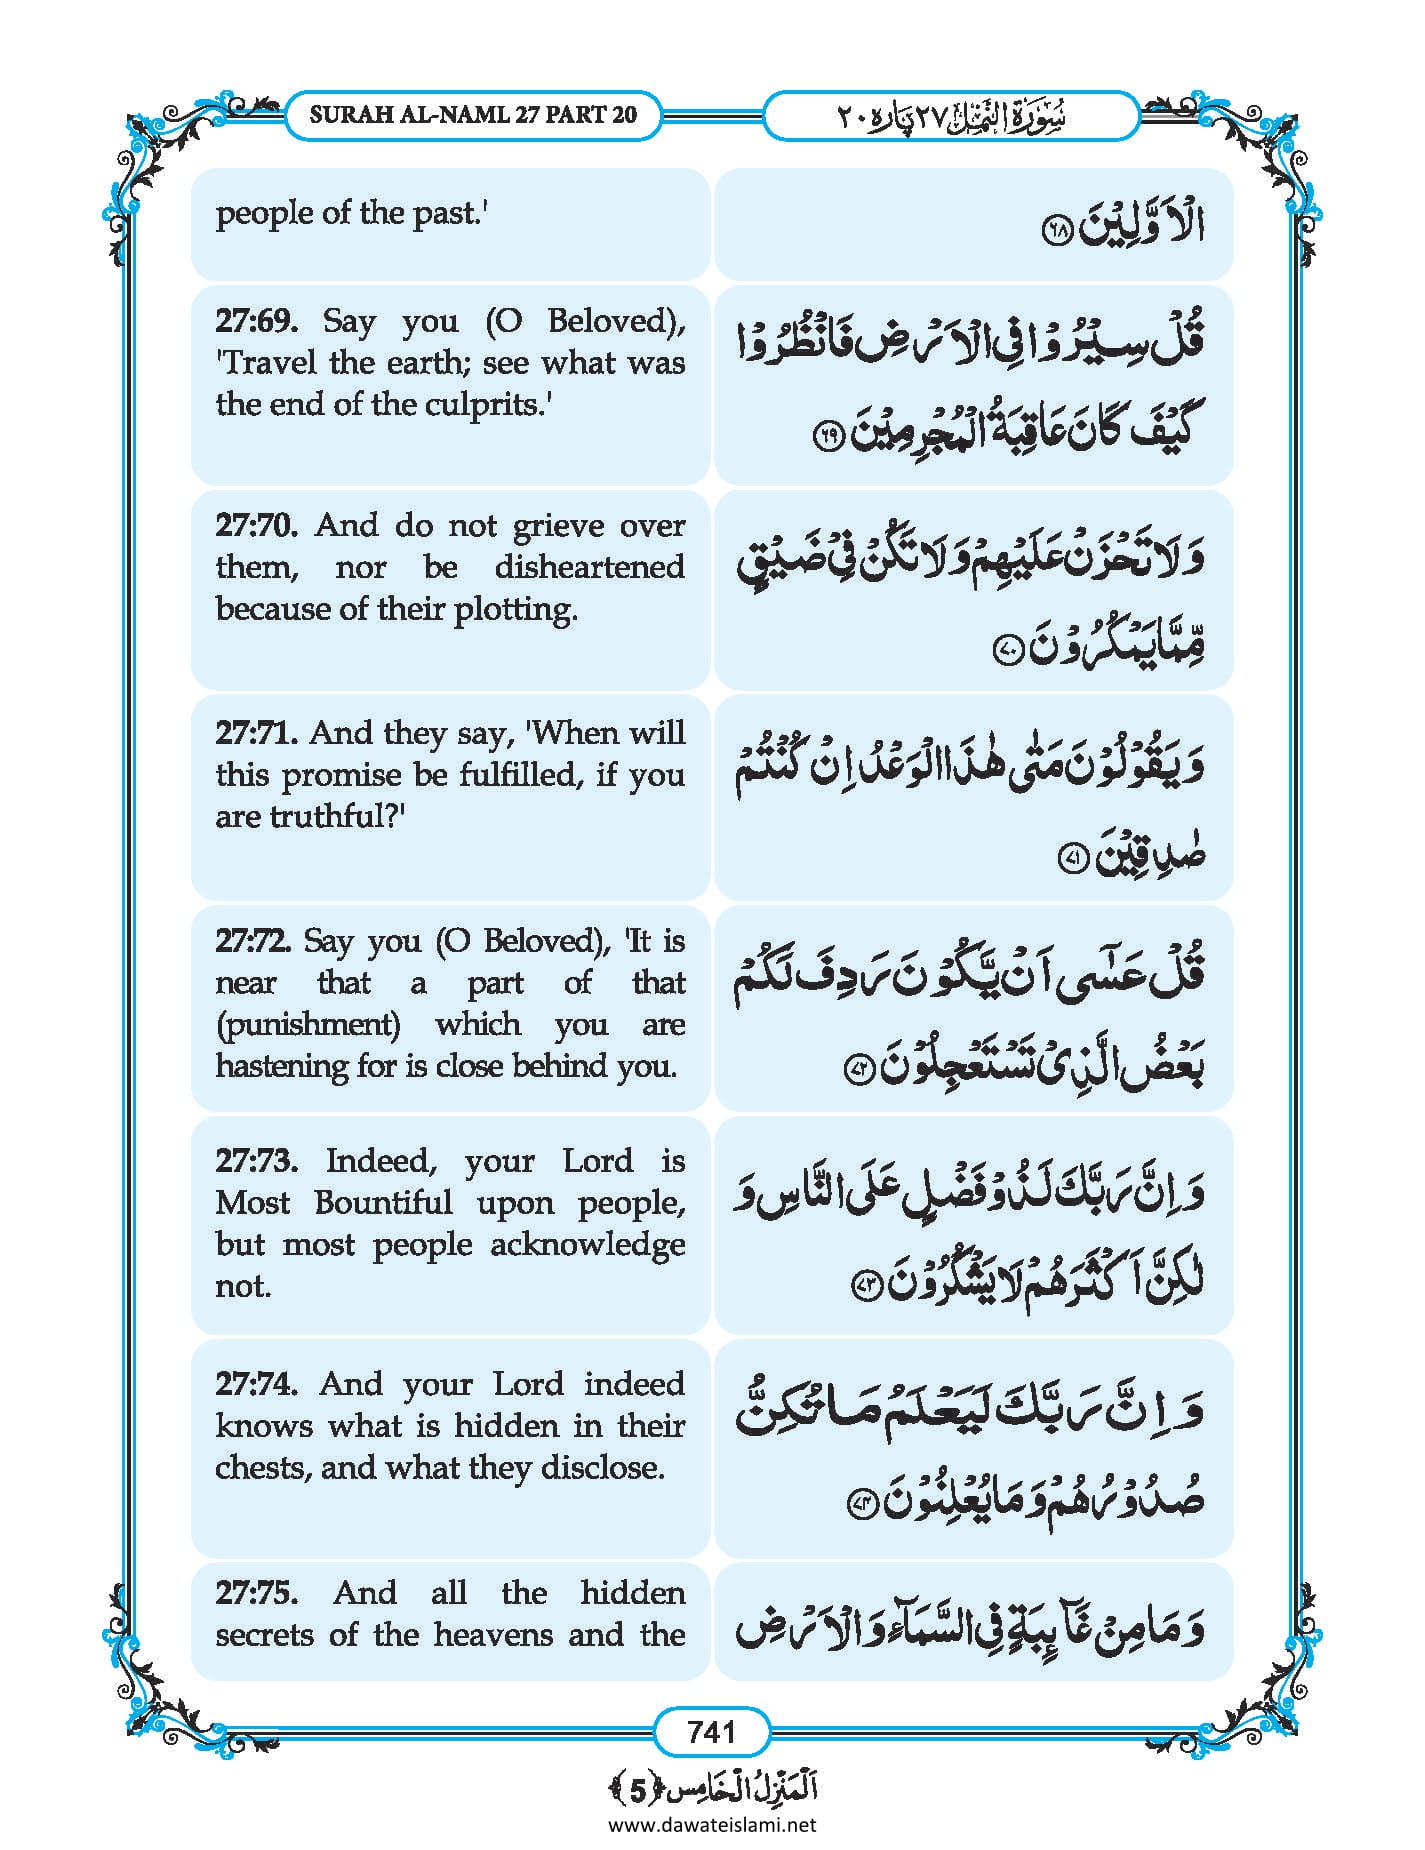 SURAH AL-NAML 27 PART 20
سُوْرَۃُ النَّمْل ۲۷ پارہ ۲۰
people of the past.'
الْاَوَّلِیْنَ ﴿۶۸﴾
27:69. Say you (O Beloved),
'Travel the earth; see what was
the end of the culprits.'
قُلْ سِیْرُوْا فِی الْاَرْضِ فَانْظُرُوْا
كَیْفَ كَانَ عَاقِبَةُ الْمُجْرِمِیْنَ ﴿۶۹﴾
27:70. And do not grieve over
them, nor be disheartened
because of their plotting.
وَ لَا تَحْزَنْ عَلَیْهِمْ وَ لَا تَكُنْ فِیْ ضَیْقٍ
مِّمَّا یَمْكُرُوْنَ ﴿۷۰﴾
27:71. And they say, 'When will
this promise be fulfilled, if you
are truthful?'
وَ یَقُوْلُوْنَ مَتٰی هٰذَا الْوَعْدُ اِنْ كُنْتُمْ
صٰدِقِیْنَ ﴿۷۱﴾
27:72. Say you (O Beloved), 'It is
near that a part of that
(punishment) which you are
hastening for is close behind you.
قُلْ عَسٰۤی اَنْ یَّكُوْنَ رَدِفَ لَكُمْ
بَعْضُ الَّذِیْ تَسْتَعْجِلُوْنَ ﴿۷۲﴾
27:73. Indeed, your Lord is
Most Bountiful upon people,
but most people acknowledge
not.
وَ اِنَّ رَبَّكَ لَذُوْ فَضْلٍ عَلَی النَّاسِ وَ
لٰكِنَّ اَكْثَرَهُمْ لَا یَشْكُرُوْنَ ﴿۷۳﴾
27:74. And your Lord indeed
knows what is hidden in their
chests, and what they disclose.
وَ اِنَّ رَبَّكَ لَیَعْلَمُ مَا تُكِنُّ
صُدُوْرُهُمْ وَ مَا یُعْلِنُوْنَ ﴿۷۴﴾
27:75. And all the hidden
secrets of the heavens and the
وَ مَا مِنْ غَآىِٕبَةٍ فِی السَّمَآءِ وَ الْاَرْضِ
741
اَلْمَنْزِلُ الْخَامِس ﴿5﴾
www.dawateislami.net